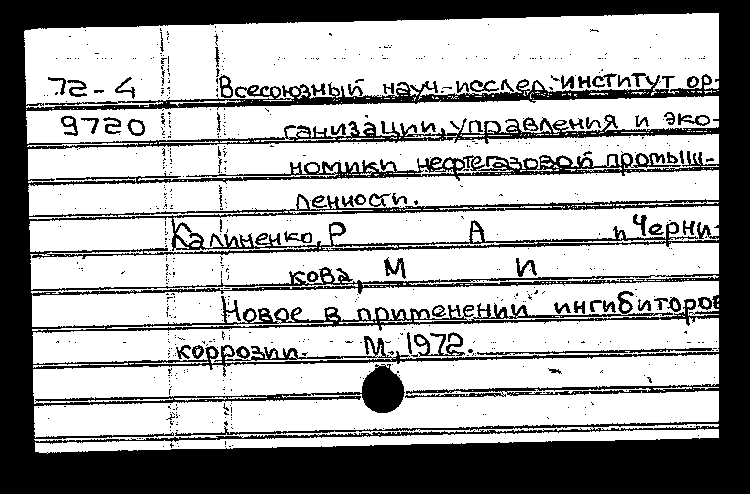 72-4 Всесоюзный науч.-исслед. институт ор-
9720 ганизации, управления и эко-
номики нефтегазовой промыш-
ленности.
Калиненко, Р А и Черни-
кова, М И
Новое в применении ингибиторов
коррозии. М., 1972.